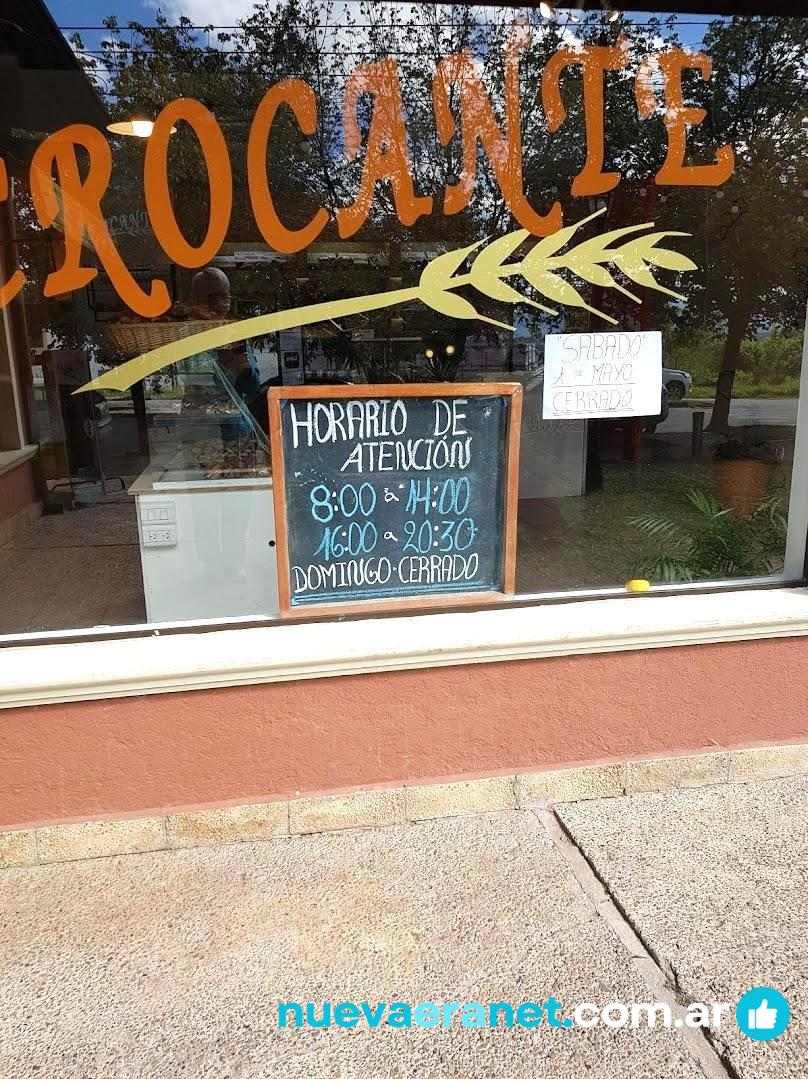 CROCANTE
"SABADO"
1 DE MAYO
CERRADO
HORARIO DE
ATENCIÓN
8:00 a 14:00
16:00 a 20:30
DOMINGO·CERRADO
nuevaeranet.com.ar